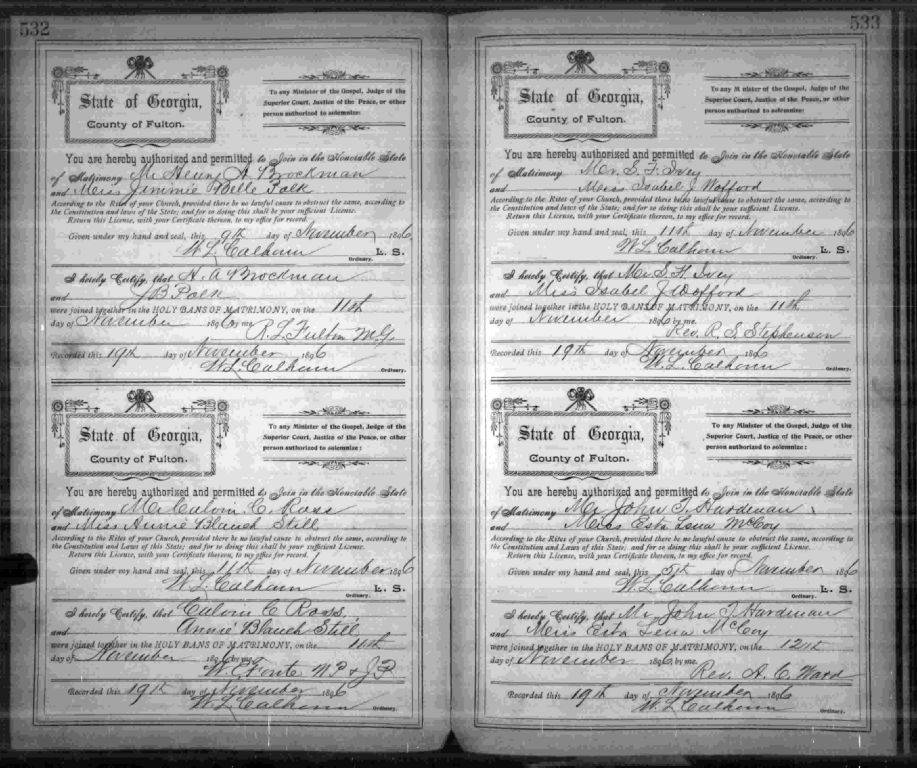 532
State of Georgia,
County of Fulton.
To any Minister of the Gospel, Judge of the
Superior Court, Justice of the Peace, or other
person authorized to solemnize:
You are hereby authorized and permitted to Join in the Honorable State
of Matrimony Mr Henry A Brockman
and Miss Jimmie Belle Polk
According to the Rites of your Church, provided there be no lawful cause to obstruct the same, according to
the Constitution and laws of this State; and for so doing this shall be your sufficient License.
Return this License, with your Certificate thereon, to my office for record.
Given under my hand and seal, this 9th day of November 1896
W. L. Calhoun L. S.
Ordinary.
I hereby Certify, that H. A Brockman
and J B Polk
were joined together in the HOLY BANS OF MATRIMONY, on the 11th
day of November 1896 by me.
R. L. Fulton M. G.
Recorded this 19th day of November 1896
W. L. Calhoun
Ordinary.
State of Georgia,
County of Fulton.
To any Minister of the Gospel, Judge of the
Superior Court, Justice of the Peace, or other
person authorized to solemnize:
You are hereby authorized and permitted to Join in the Honorable State
of Matrimony Mr Calvin C. Ross
and Miss Annie Blanch Still
According to the Rites of your Church, provided there be no lawful cause to obstruct the same, according to
the Constitution and Laws of this State; and for so doing this shall be your sufficient License.
Return this License, with your Certificate thereon, to my office for record.
Given under my hand and seal, this 11th day of November 1896
W. L. Calhoun L. S.
Ordinary.
I hereby Certify, that Calvin C Ross
and Annie Blanch Still
were joined together in the HOLY BANS OF MATRIMONY, on the 11th
day of November 1896 by me.
W. E. J. P.
Recorded this 19th day of November 1896
W. L. Calhoun
Ordinary.
533
State of Georgia,
County of Fulton.
To any Minister of the Gospel, Judge of the
Superior Court, Justice of the Peace, or other
person authorized to solemnize:
You are hereby authorized and permitted to Join in the Honorable State
of Matrimony Mr. S. F. Ivey
and Miss Isabel J Wofford
According to the Rites of your Church, provided there be no lawful cause to obstruct the same, according to
the Constitution and laws of this State; and for so doing this shall be your sufficient License.
Return this License, with your Certificate thereon, to my office for record.
Given under my hand and seal, this 11th day of November 1896
W. L. Calhoun L. S.
Ordinary.
I hereby Certify, that Mr S. H. Ivey
and Miss Isabel J Wofford
were joined together in the HOLY BANS OF MATRIMONY, on the 11th
day of November 1896 by me.
Rev. R. S. Stephenson
Recorded this 19th day of November 1896
W. L. Calhoun
Ordinary.
State of Georgia,
County of Fulton.
To any Minister of the Gospel, Judge of the
Superior Court, Justice of the Peace, or other
person authorized to solemnize:
You are hereby authorized and permitted to Join in the Honorable State
of Matrimony Mr. John T. Hardman
and Miss Esta Lena McCoy
According to the Rites of your Church, provided there be no lawful cause to obstruct the same, according to
the Constitution and Laws of this State; and for so doing this shall be your sufficient License.
Return this License, with your Certificate thereon, to my office for record.
Given under my hand and seal, this 5th day of November 1896
W. L. Calhoun L. S.
Ordinary.
I hereby Certify, that Mr. John T. Hardman
and Miss Esta Lena McCoy
were joined together in the HOLY BANS OF MATRIMONY, on the 12th
day of November 1896 by me.
Rev. A. C. Ward
Recorded this 19th day of November 1896
W. L. Calhoun
Ordinary.